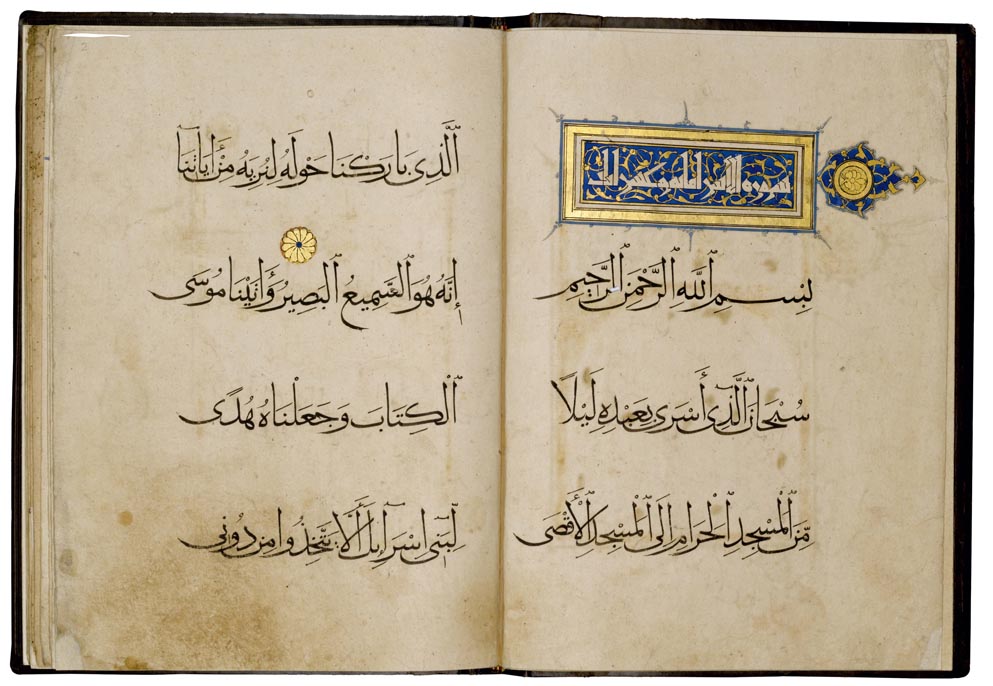 سورة
بِسْمِ اللَّهِ الرَّحْمَنِ الرَّحِيمِ
سُبْحَانَ الَّذِي أَسْرَى بِعَبْدِهِ لَيْلًا
مِّنَ الْمَسْجِدِ الْحَرَامِ إِلَى الْمَسْجِدِ الْأَقْصَى
الَّذِي بَارَكْنَا حَوْلَهُ لِنُرِيَهُ مِنْ آيَاتِنَا
إِنَّهُ هُوَ السَّمِيعُ الْبَصِيرُ وَآتَيْنَا مُوسَى
الْكِتَابَ وَجَعَلْنَاهُ هُدًى
لِّبَنِي إِسْرَائِيلَ أَلَّا يَتَّخِذُوا مِن دُونِي